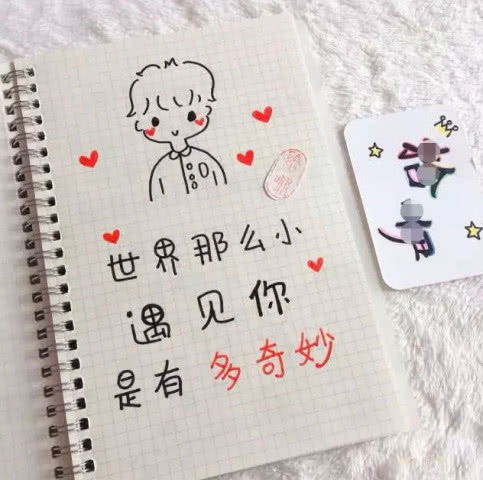 世界那么小
遇见你
是有多奇妙